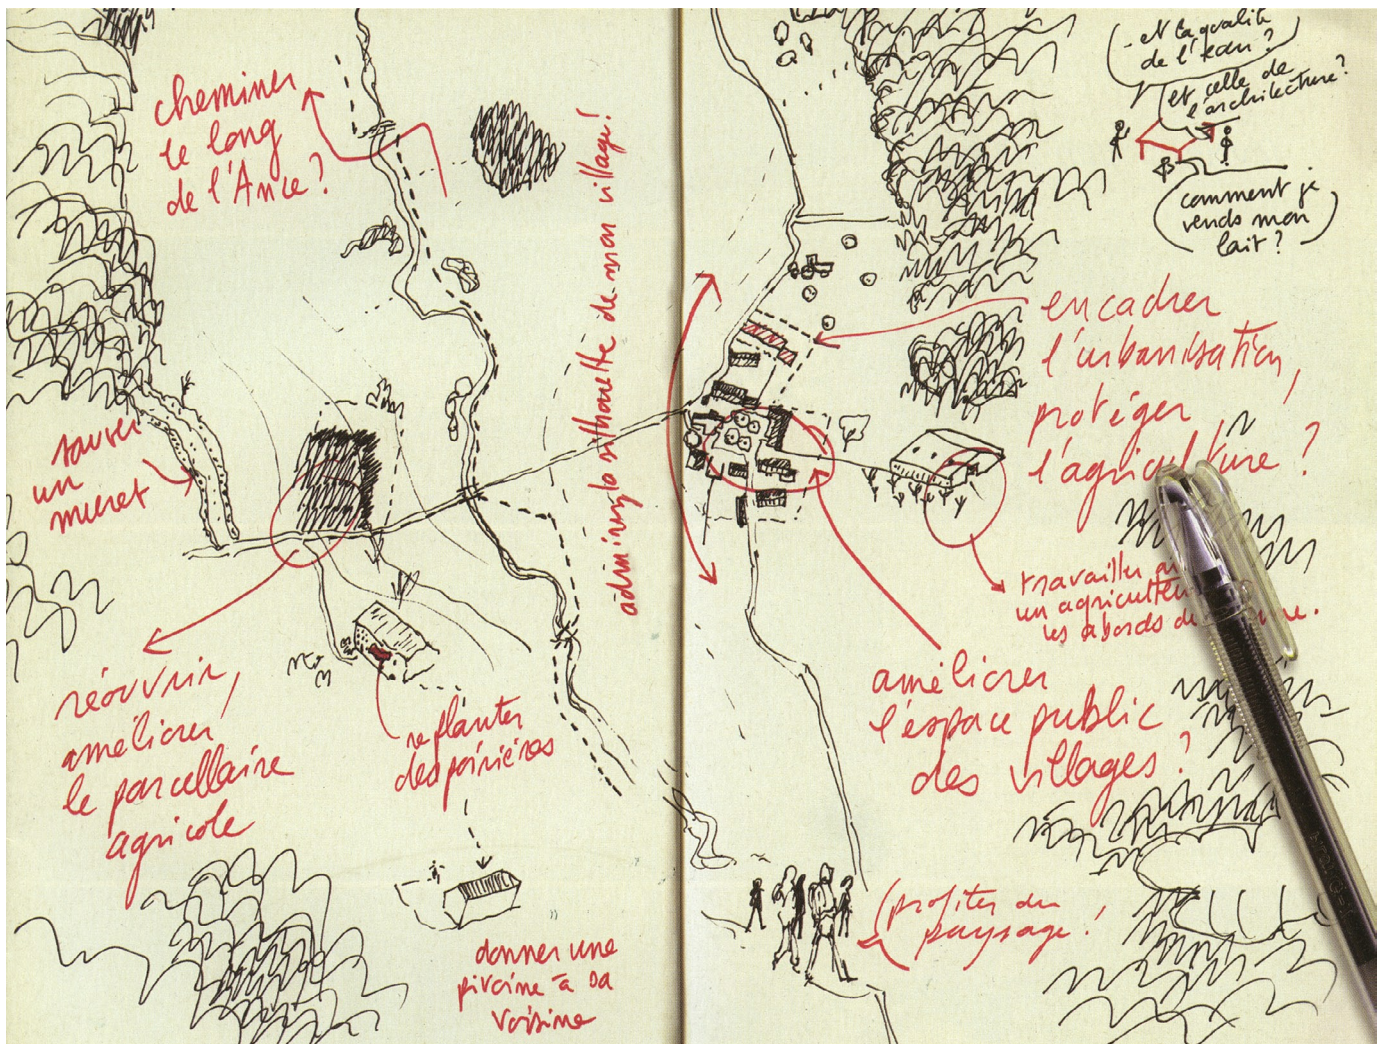 cheminer
le long
de l'Ance ?
sauver
un
muret
réouvrir,
améliorer
le parcellaire
agricole
replanter
des pivoines
donner une
pivoine à sa
voisine
admirer la silhouette de mon village !
- et la qualité
de l'eau ?
et celle de
l'architecture ?
comment je
vends mon
lait ?
encadrer
l'urbanisation,
protéger
l'agriculture ?
travailler
un agriculteur
les abords de
améliorer
l'espace public
des villages ?
(profiter du
paysage !